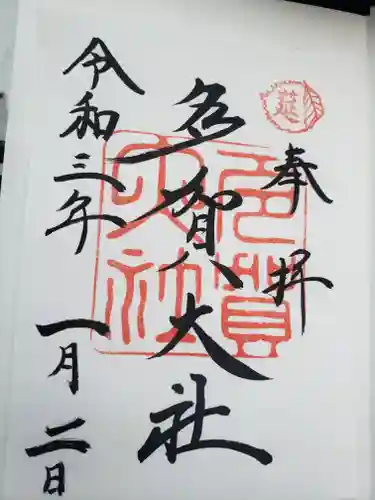 莚
奉拝
多賀大社
多賀大社
令和三年
一月二日